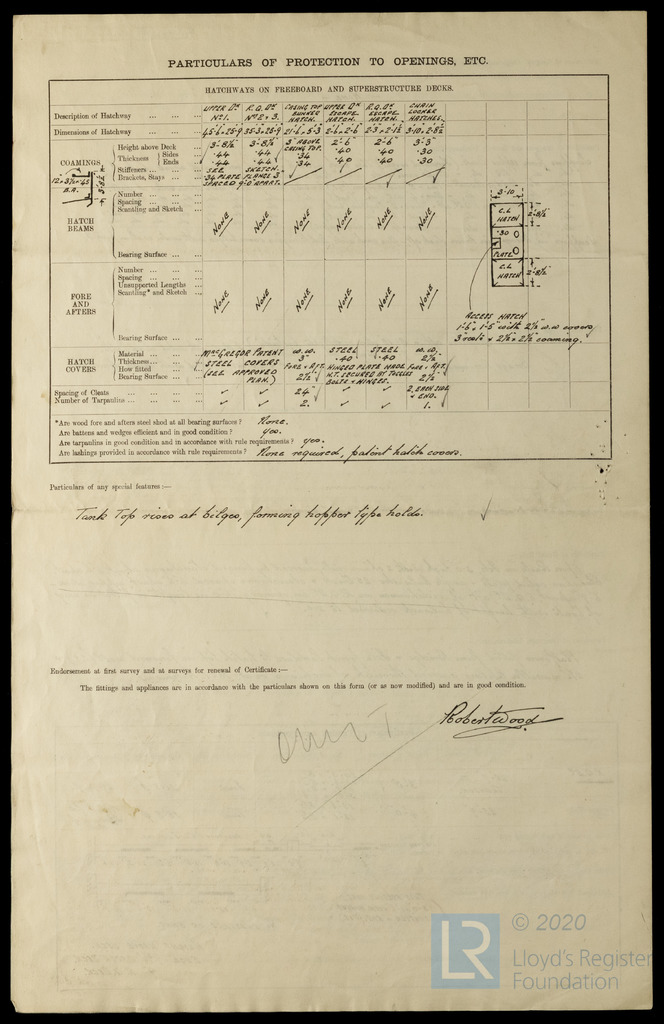 PARTICULARS OF PROTECTION TO OPENINGS, ETC.
HATCHWAYS ON FREEBOARD AND SUPERSTRUCTURE DECKS.
Description of Hatchway ... ... ... UPPER DK No 1. R.Q. DK No 2 & 3. CASING TOP BUNKER HATCH. UPPER DK ESCAPE HATCH. R.Q. DK ESCAPE HATCH. CHAIN LOCKER HATCHES.
Dimensions of Hatchway ... ... 45-6 × 25-9 35-3 × 25-9 21-6 × 5-3 2-6 × 2-6
COAMINGS
Height above Deck ... 3'-8½" 3'-8½" 3" ABOVE CASING TOP. 2'-6" 2'-6" 3'-3"
Thickness Sides ... .44 .44 .34 .40 .40 .30
Ends ... .44 .44 .34 .40 .40 .30
Stiffeners ... ... ... SEE SKETCH.
Brackets, Stays ... ... .34 PLATE FLANGED 3" SPACED 9'-0" APART.
B.A.
HATCH BEAMS
Number ... ... ...
Spacing ... ... ...
Scantling and Sketch ...
NONE NONE NONE NONE NONE NONE
Bearing Surface ... ...
3'-10"
C.L HATCH
2'-8½"
.30
PLATE
C.L HATCH
2'-8½"
FORE AND AFTERS
Number ... ... ...
Spacing ... ... ...
Unsupported Lengths ...
Scantling* and Sketch ...
NONE NONE NONE NONE NONE NONE
Bearing Surface ... ...
ACCESS HATCH
1'-6" × 1'-5" with 2½" w.w covers
HATCH COVERS
Material ... ... ... MacGREGOR PATENT STEEL COVERS (SEE APPROVED PLAN.) W.W. STEEL STEEL W.W.
Thickness ... ... ... 3" 2½"
How fitted ... ... FORE & AFT. HINGED PLATE MADE W.T. SECURED BY TOGGLE BOLTS & HINGES. FORE & AFT.
Bearing Surface ... ... 2½" 2½"
Spacing of Cleats ... ... ... ... ✓ ✓ 24" ✓ ✓ 2. EACH SIDE & END.
Number of Tarpaulins ... ... ... ✓ ✓ 2. 1.
*Are wood fore and afters steel shod at all bearing surfaces? None.
Are battens and wedges efficient and in good condition? Yes.
Are tarpaulins in good condition and in accordance with rule requirements? yes.
Are lashings provided in accordance with rule requirements? None required, patent hatch covers.
Particulars of any special features:—
Tank Top rises at bilges, forming hopper type holds. ✓
Endorsement at first survey and at surveys for renewal of Certificate:—
The fittings and appliances are in accordance with the particulars shown on this form (or as now modified) and are in good condition.
Robert Wood
omit
LR © 2020
Lloyd's Register
Foundation